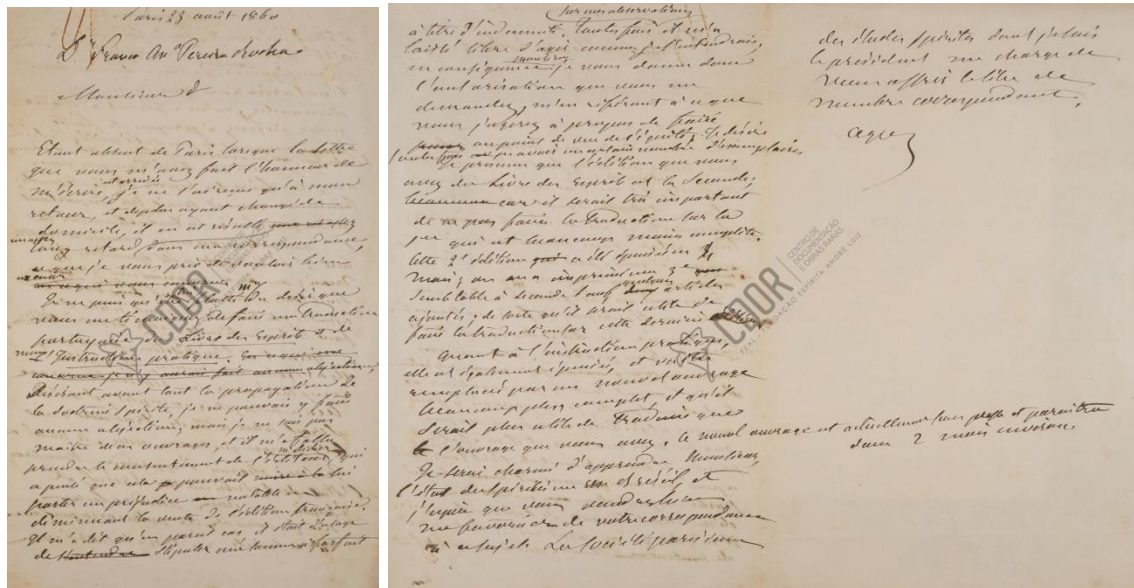 Paris 23 août 1860
Dr Franco An Pereira Rocha
Monsieur
Etant absent de Paris lorsque la lettre
que vous m'avez fait l'honneur de
m'écrire est arrivée, je ne l'ai reçue qu'à mon
retour, et depuis ayant changé de
domicile, il en est résulté
un assez long retard dans ma correspondance,
ce que je vous prie de vouloir bien
excuser
Je ne puis que
désir que
vous me témoignez de faire une traduction
portugaise du Livre des Esprits et de
l'Instruction pratique.
aucune objection,
Désirant avant tout la propagation de
la doctrine spirite, je ne pouvais y faire
aucune objection; mais je ne suis pas
maître de mes ouvrages, et il m'a fallu
prendre le consentement de l'éditeur, qui
a pensé que cela pouvait lui
porter un préjudice notable en
diminuant la vente de l'édition française.
Il m'a dit qu'en pareil cas il était d'usage
de stipuler une somme à forfait
sur mes observations
à titre d'indemnité. Toutefois il m'a
laissé libre d'agir comme je l'entendrais,
en conséquence, je vous donne donc
l'autorisation que vous me
demandez, m'en référant à ce que
vous jugerez à propos de faire
au point de vue de l'équité; Je désire
avoir un certain nombre d'exemplaires
Je présume que l'édition que vous
avez du Livre des Esprits est la Seconde,
car il serait très important
de ne pas faire la traduction sur la
1re qui est beaucoup moins complète.
Cette 2e édition a été épuisée en
mois; on en a imprimé une 3e
Semblable à la seconde sauf quelques articles
ajoutés; de sorte qu'il serait utile de
faire la traduction sur cette dernière
Quant à l'instruction pratique,
elle est également épuisée, et va être
remplacée par un nouvel ouvrage
beaucoup plus complet, et qu'il
serait plus utile de traduire que
l'ouvrage que vous avez. Ce nouvel ouvrage est actuellement sous presse et paraîtra
dans 2 mois environ.
Je serai charmé d'apprendre, Monsieur,
l'état du spiritisme au Brésil, et
j'espère que vous voudrez bien
me favoriser de votre correspondance
à ce sujet. La Société parisienne
des études spirites dont je suis
le président me charge de
vous offrir le titre de
membre correspondant.
agréez
CDOR
CENTRO DE
DOCUMENTAÇÃO
E OBRAS RARAS
FEAL FUNDAÇÃO ESPÍRITA ANDRÉ LUIZ